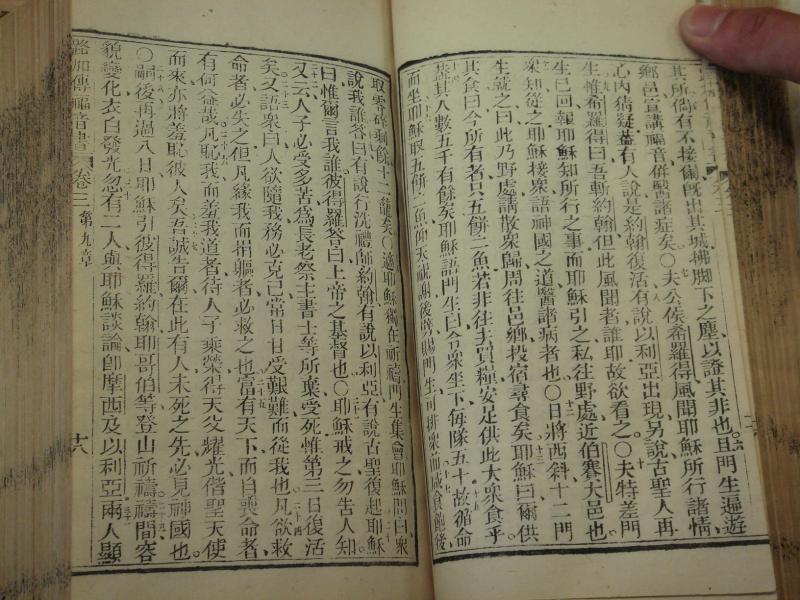 其所倘有不接爾旣出其城拂脚下之塵以證其非也且門生遍遊
鄉邑宣講福音倂醫諸症矣○夫公侯希羅得風聞耶穌所行諸情
心內猜疑蓋有人說是約翰復活有說以利亞出現另說古聖人再
生惟希羅得曰吾斬約翰但此風聞者誰耶故欲看之○夫特差門
生已回報耶穌知所行之事而耶穌引之私往野處近伯賽大邑也
衆知從之耶穌接衆語神國之道醫諸病者也○日將西斜十二門
生就之曰此乃野處請散衆歸周往邑鄉投宿尋食矣耶穌曰爾供
其食曰今所有者只五餅二魚若非往夫買糧安足供此大衆食乎
蓋其人數五千有餘矣耶穌語門生曰令衆坐下每隊五十故循命
而坐耶穌取五餅二魚仰天祝謝後擘賜門生可排衆前咸食飽後
取零碎剩餘十二籮矣○適耶穌獨在祈禱門生集會耶穌問曰衆
說我誰答曰有說行洗禮師約翰有說以利亞有說古聖復起耶穌
曰惟爾言我誰彼得羅答曰上帝之基督也○耶穌戒之勿告人知
又云人子必受多苦爲長老祭主書士等所棄受死惟第三日復活
矣又語衆曰人欲隨我務必克己當日日受艱難而從我也凡欲救
命者必失之但凡緣我而捐軀者必救之也富有天下而自喪命者
有何益哉凡恥我而羞我道者待人子乘榮得天父耀光偕聖天使
而來亦將羞恥彼人矣吾誠告爾在此有人未死之先必見神國也
○嗣後再過八日耶穌引彼得羅約翰耶哥伯等登山祈禱禱間容
貌變化衣白發光忽有二人與耶穌談論卽摩西及以利亞兩人顯
路加傳福音書 卷三 第九章 十六